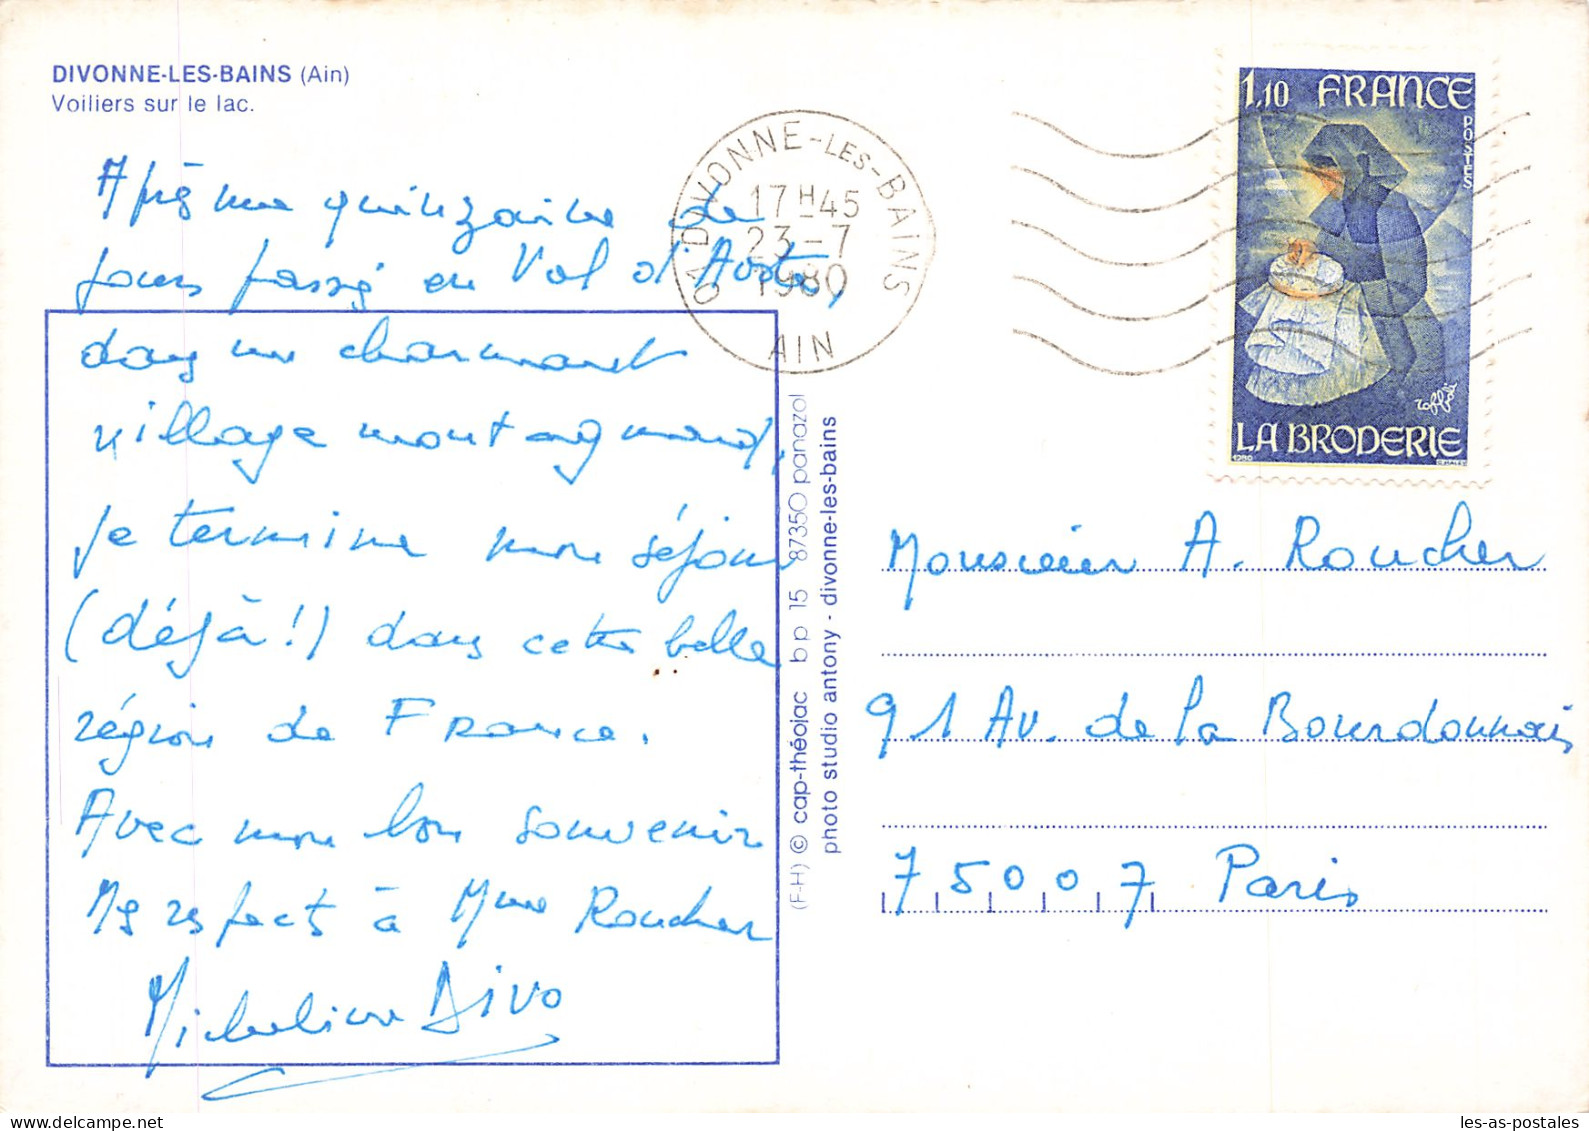 DIVONNE-LES-BAINS (Ain)
Voiliers sur le lac.
Après une quinzaine de
jours passés en Val d'Aoste,
dans un charmant
village montagnard,
je termine mon séjour
(déjà!) dans cette belle
région de France.
Avec mon bon souvenir
Mes respects à Mme Roucher
Micheline Divo
(F-H) © cap-théojac bp 15 87350 panazol
photo studio antony - divonne-les-bains
01 DIVONNE-LES-BAINS
17H45
23-7
1980
AIN
1,10 FRANCE
POSTES
LA BRODERIE
1980
Monsieur A. Roucher
91 Av. de la Bourdonnais
75007 Paris
les-as-postales